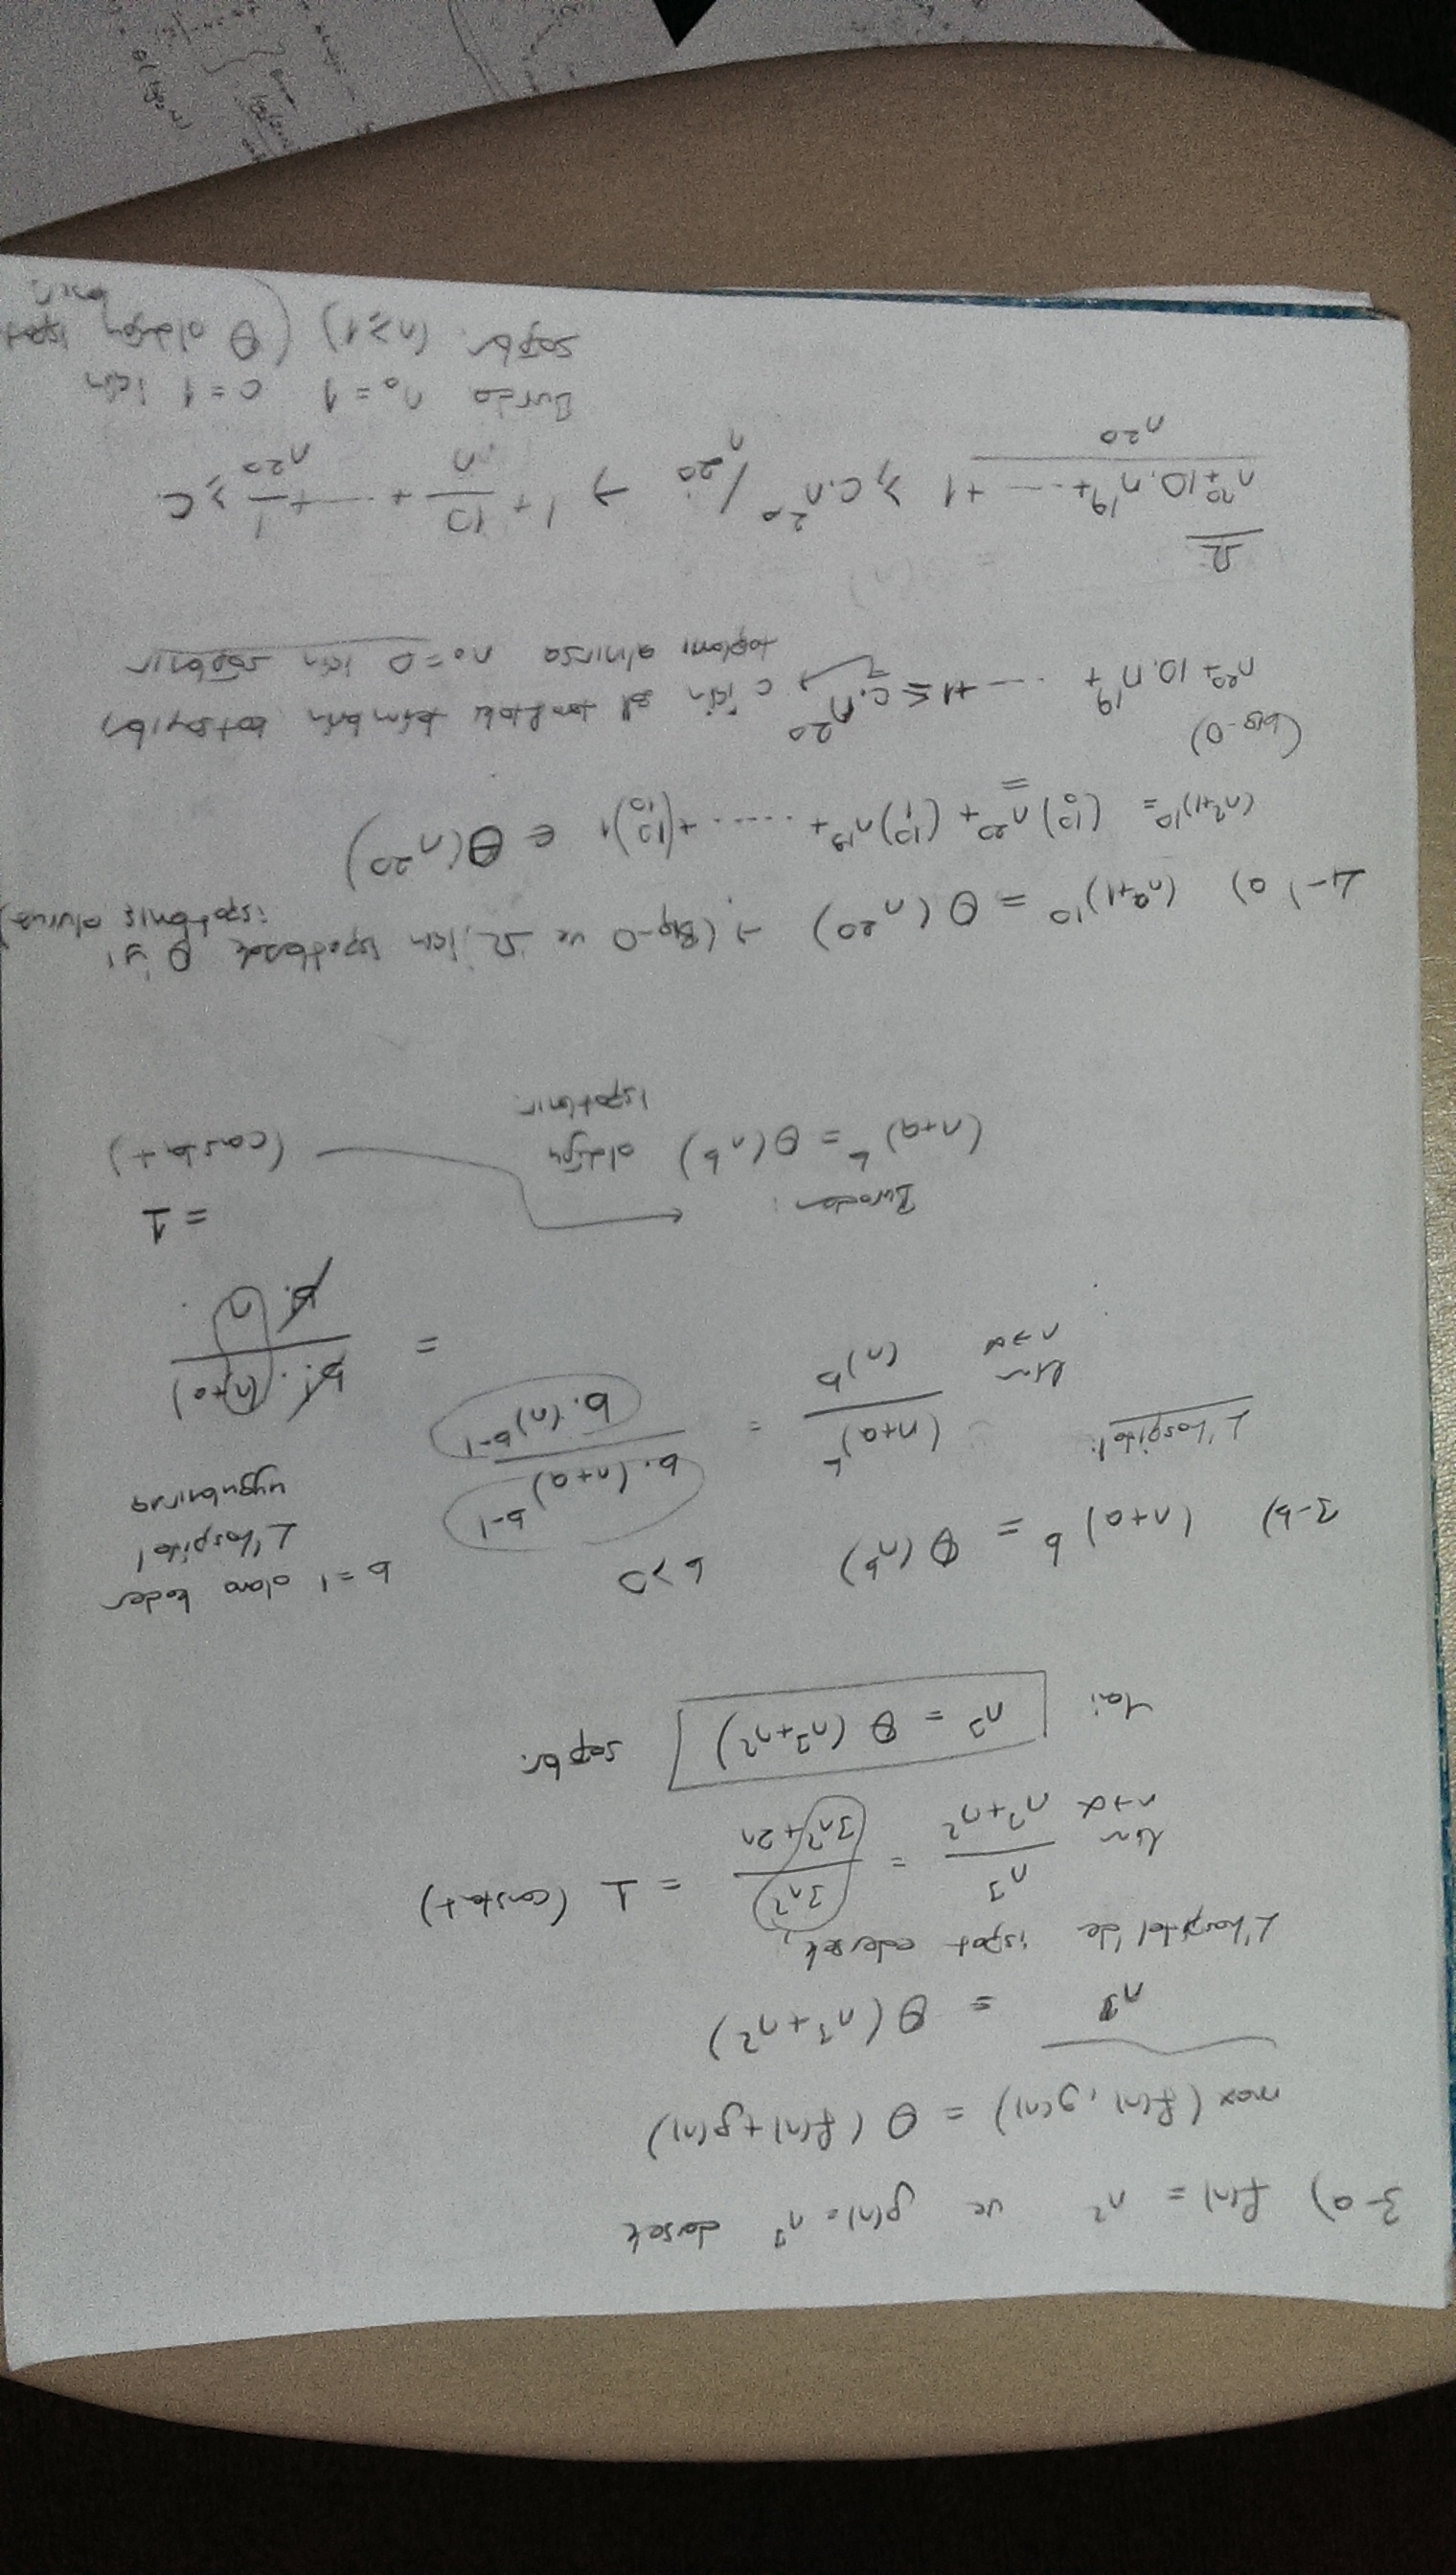 3-a) f(n) = n² ve g(n) = n³ dersek
max(f(n), g(n)) = Θ(f(n)+g(n))
n³ = Θ(n³+n²)
L'hospital'de ispat edersek,
lim n→∞ n³/(n³+n²) = 3n²/(3n²+2n) = 1 (constant)
Yani n³ = Θ(n³+n²) sağlar.
3-b) (n+a)^b = Θ(n^b) b>0
b=1 olana kadar L'hospital uygulanırsa
L'hospital: lim n→∞ (n+a)^b/(n)^b = b.(n+a)^(b-1)/b.(n)^(b-1)
= b!.(n+a)/b!.n
= 1
(constant)
Buradan:
(n+a)^b = Θ(n^b) olduğu
ispatlanır.
4-) a) (n²+1)^10 = Θ(n^20) → (Big-O ve Ω için ispatlarsak Θ'yı
ispatlamış oluruz)
(n²+1)^10 = (10 0) n^20 + (10 1) n^19 + ..... + (10 10) 1 ∈ Θ(n^20)
(big-O)
n^20 + 10.n^19 + ..... +1 ≤ c.n^20 → c için sol taraftaki katsayıları
toplamı alınırsa n₀=0 için sağlanır
Ω
(n^20+10.n^19+..... +1)/n^20 ≥ c.n^20/n^20 → 1 + 10/n + ..... + 1/n^20 ≥ c.
Burda n₀=1 c=1 için
sağlar. (n≥1) (Θ olduğu ispat
lanır.